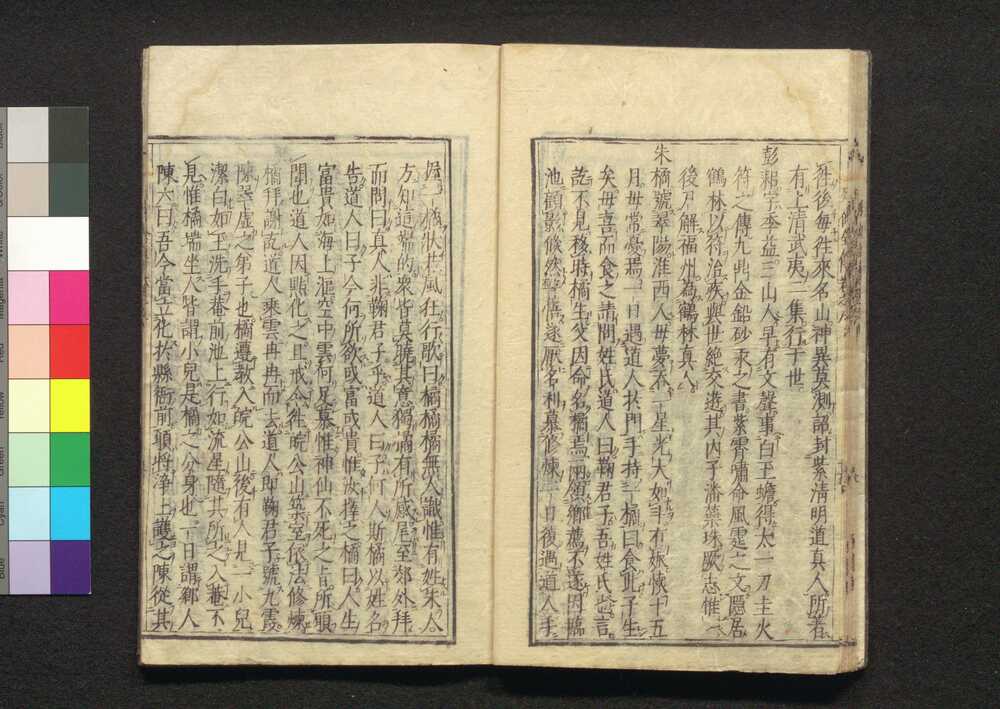 後每往來名山神異莫測詔封紫清明道真人所著
有上清武夷二集行于世
彭耜字季益三山人早有文聲事白玉蟾得太一刀圭火
符之傳九鼎金鉛砂汞之書紫霄嘯命風霆之文隱居
鶴林以符治疾與世絕交遊其內子潘蘂珠厥志惟一
後尸解福州為鶴林真人
朱橘號翠陽淮西人母夢吞一星光大如斗有娠懷十五
月母常憂焉一日遇道人於門手持一橘曰食此子生
矣母喜而食之請問姓氏道人曰鞠君子吾姓氏也言
訖不見移時橘生父因命名橘焉兩領鄉薦不遂因臨
池顧影倏然警悟遂厭名利慕修煉一日後遇道人手
一橘狀若風狂行歌曰橘橘橘無人識惟有姓朱人
方知這端的眾皆莫曉其意獨橘有所感尾至郊外拜
而問曰真人非鞠君子乎道人曰子何人斯橘以姓名
告道人曰子今何所欲或富或貴惟汝擇之橘曰人生
富貴如海上漚空中雲何足慕惟神仙不死之旨所願
聞也道人因點化之且戒令往皖公山築室依法修煉
橘拜謝訖道人乘雲冉冉而去道人即鞠君子號九霞
陳翠虛之弟子也橘遵教入皖公山後有人見一小兒
潔白如玉洗手菴前池上行如流星隨其所之入菴不
見惟橘端坐人皆謂小兒是橘之分身也一日謂鄰人
陳六曰吾今當立化於縣衙前頭將淨土護之陳從其